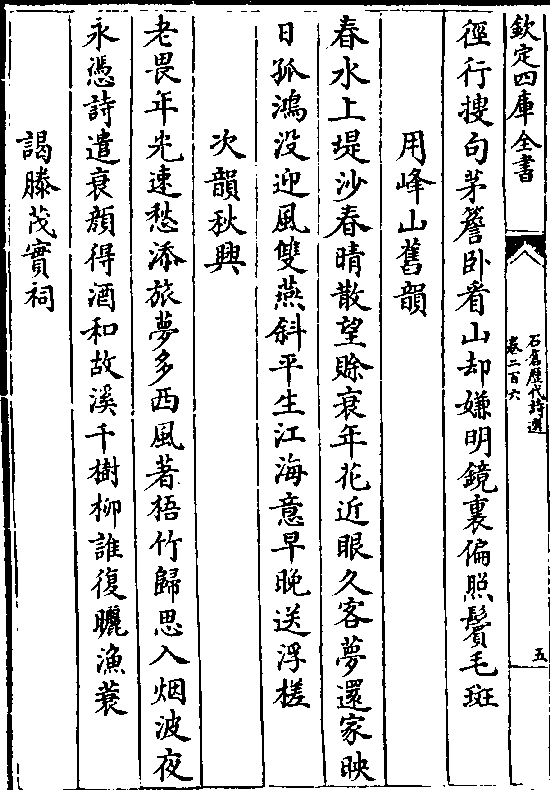 欽定四庫全書
石倉歷代詩選
卷二百六
五
徑行搜句茅簷卧看山却嫌明鏡裏偏照鬢毛斑
用峰山舊韻
春水上堤沙春晴散望賒衰年花近眼久客夢還家映
日孤鴻没迎風雙燕斜平生江海意早晚送浮槎
次韻秋興
老畏年光速愁添旅夢多西風著梧竹歸思入烟波夜
永憑詩遣衰顔得酒和故溪千樹柳誰復曬漁蓑
謁滕茂實祠